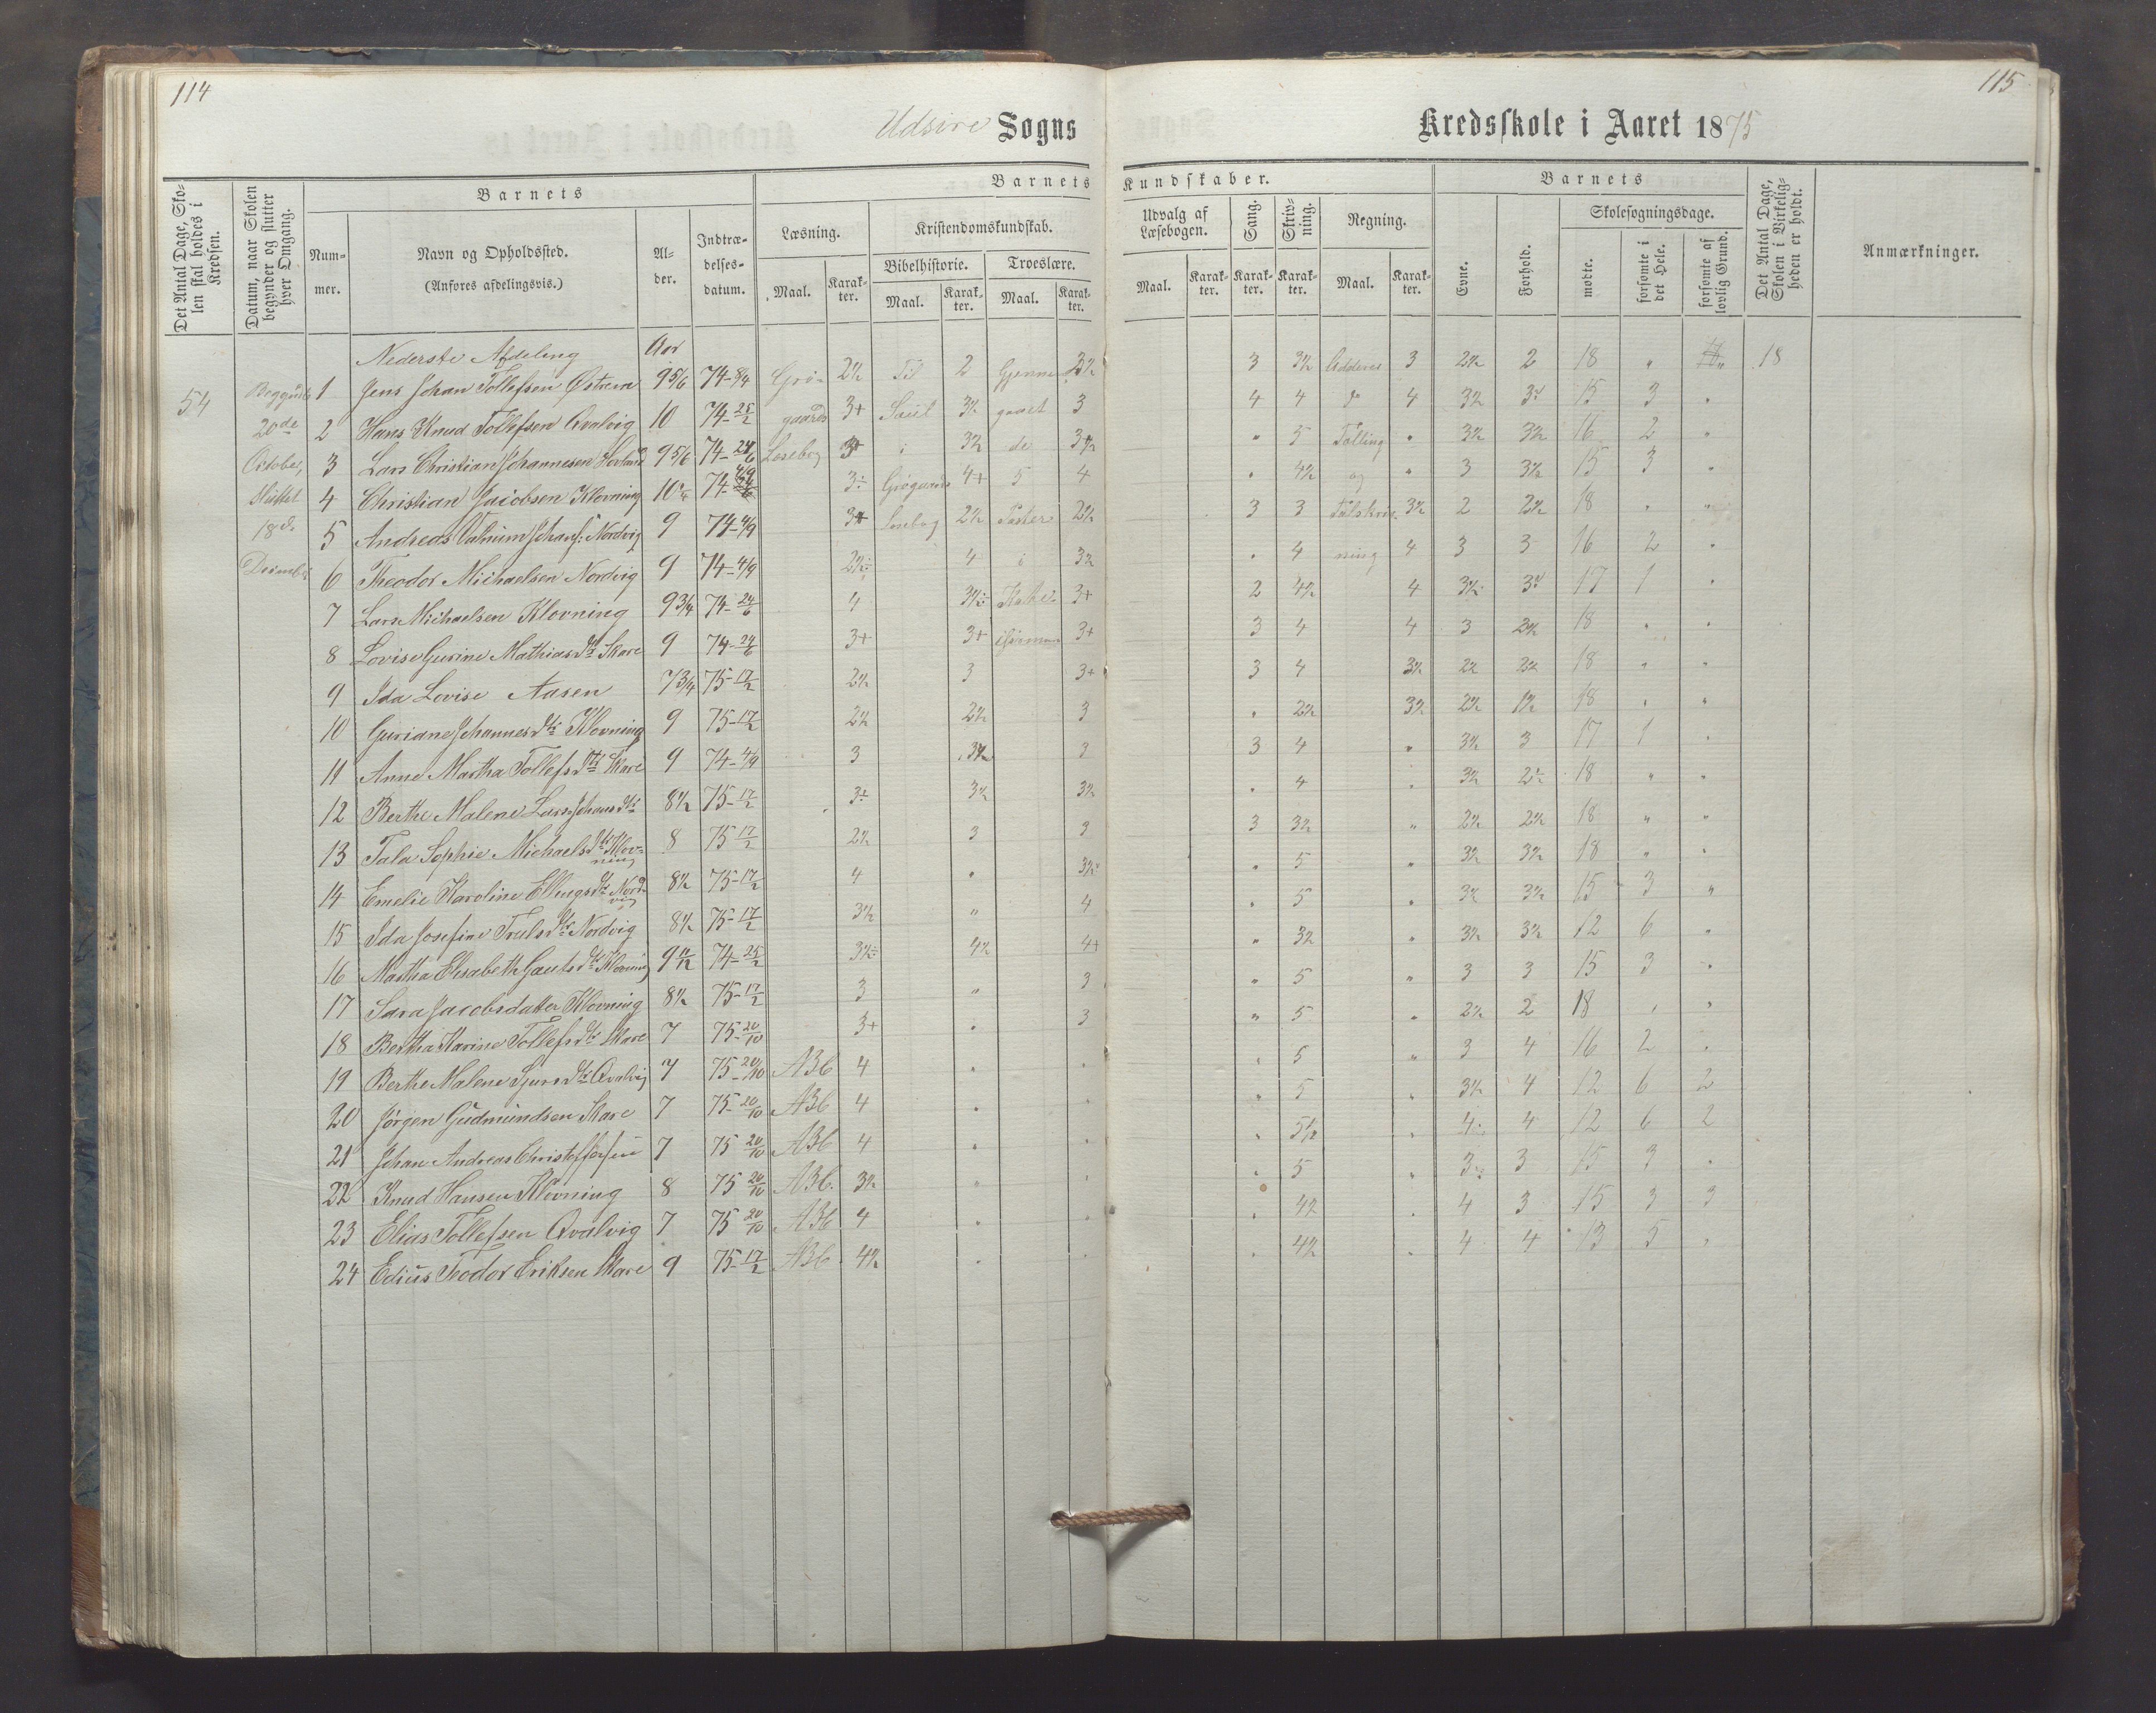 114
115
Udsire Sogns Kredsskole i Aaret 1875
Det Antal Dage, Skolen skal holdes i Kredsen.
Datum, naar Skolen begynder og slutter hver Omgang.
Barnets
Nummer.
Navn og Opholdssted.
(Anføres afdelingsvis.)
Alder.
Indtrædelsesdatum.
Barnets Kundskaber.
Læsning.
Maal. Karakter.
Kristendomskundskab.
Bibelhistorie.
Maal. Karakter.
Troeslære.
Maal. Karakter.
Udvalg af Læsebogen.
Maal. Karakter.
Sang.
Karakter.
Skrivning.
Karakter.
Regning.
Maal. Karakter.
Barnets
Evne.
Forhold.
Skolesøgningsdage.
mødte.
forsømte i det Hele.
forsømte af lovlig Grund.
Det Antal Dage, Skolen i Virkeligheden er holdt.
Anmærkninger.
Nederste Afdeling Aar
54
20de
October,
Sluttet
18de
1 Jens Johan Tollefsen Østrem 9 5/6 74-8/4 2½ Til 2 3 3½ Adderer 3 2½ 2 18 " 18
2 Hans Knud Tollefsen Qvalvig 10 74-25/2 3+ Saul 3½ 3 4 4 4 3½ 15 3 "
3 Lars Christian Johannesen 9 5/6 74-24/6 Læsebog i 3½ de " 5 Tælling " 3½ 3½ 16 2 "
4 Christian Jacobsen Klovning 3÷ 4+ 5 4 " 4½ og " 3 3½ 15 3 "
5 Andreas Nordvig 9 74-4/9 Læsebog 2½ 2½ 3 3 3½ 2 2½ 18 " "
6 Theodor Michaelsen Nordvig 9 74-4/9 2½÷ 4 i 3½ " 4 ning 4 3 3 16 2 "
7 Lars Michaelsen Klovning 9 3/4 74-24/6 4 3½÷ 3+ 2 4½ 4 3½ 17 1 "
8 Lovise Gurine Mathiasdtr Skare 9 74-24/6 3+ 3+ 3+ 3 4 4 3 2½ 18 " "
9 Ida Lovise Aasen 7 3/4 75-17/2 2½ 3 3+ 3 4 3½ 2½ 2½ 18 " "
10 Guriane Johannesdtr Klovning 9 75-17/2 2½ 2½ 3 " 2½ 3½ 2½ 1½ 18 " "
11 Anne Martha Tollefsdtr Skare 9 74-4/9 3 3½ 3 3 4 " 3½ 3 17 1 "
12 Berthe Malene Lars Johansdtr 8½ 75-17/2 3+ 3½ 3½ " 4 " 3½ 2½ 18 " "
13 Tala Sophie Michaelsdtr Klovning 8 75-17/2 2½ 3 3 3 3½ " 2½ 2½ 18 " "
14 Emelie Karoline Ellingsdtr Nordvig 8½ 75-17/2 4 " 3½ " 5 " 3½ 3½ 18 " "
15 Ida Josefine Trulsdtr Nordvig 8½ 75-17/2 3½ " 4 " 5 " 3½ 3½ 15 3 "
16 Martha Elisabeth Gautsdtr Klovning 74-25/2 3½÷ 4½ 4+ " 3½ " 3½ 3½ 12 6 "
17 Sara Jacobsdatter Klovning 8½ 75-17/2 3 " 3 " 5 " 3 3 15 3 "
18 Bertha Karine Tollefsdtr Skare 7 75-20/10 3+ " 3 " 5 " 2½ 2 18 " "
19 Berthe Malene Sjursdtr Qvalvig 7 75-20/10 ABC 4 " " " 5 " 3 4 16 2 "
20 Jørgen Gudmundsen Skare 7 75-20/10 ABC 4 " " " 5 " 3½ 4 12 6 2
21 Johan Andreas Christoffersen 7 75 20/10 ABC 4 " " " 5½ " 4 4 12 6 2
22 Knud Hansen Klovning 8 75 20/10 ABC. 3½ " " " 5 " 3½ 3 15 3 "
23 Elias Tollefsen Qvalvig 7 75 20/10 ABC 4 " " " 4½ " 4 3 15 3 3
24 Edius Teodor Eriksen Skare 9 75-17/2 ABC 4½ " " " 4½ " 4 4 13 5 "